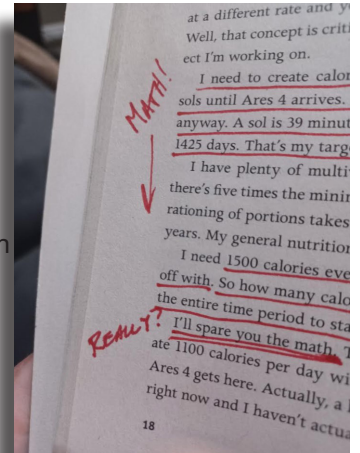 at a different rate and
Well, that concept is
ect I'm working on.
MATH!
I need to create
sols until Ares 4 arrives.
anyway. A sol is 39
1425 days. That's my
I have plenty of
there's five times the
rationing of portions takes
years. My general
I need 1500 calories
off with. So how many
the entire time period to
REALLY?
I'll spare you the math.
ate 1100 calories per day
Ares 4 gets here. Actually, a
right now and I haven't
18